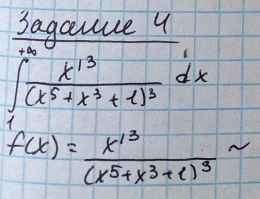 Задание 4
+∞
∫ x¹³/(x⁵+x³+1)³ dx
1
f(x) = x¹³/(x⁵+x³+1)³ ~